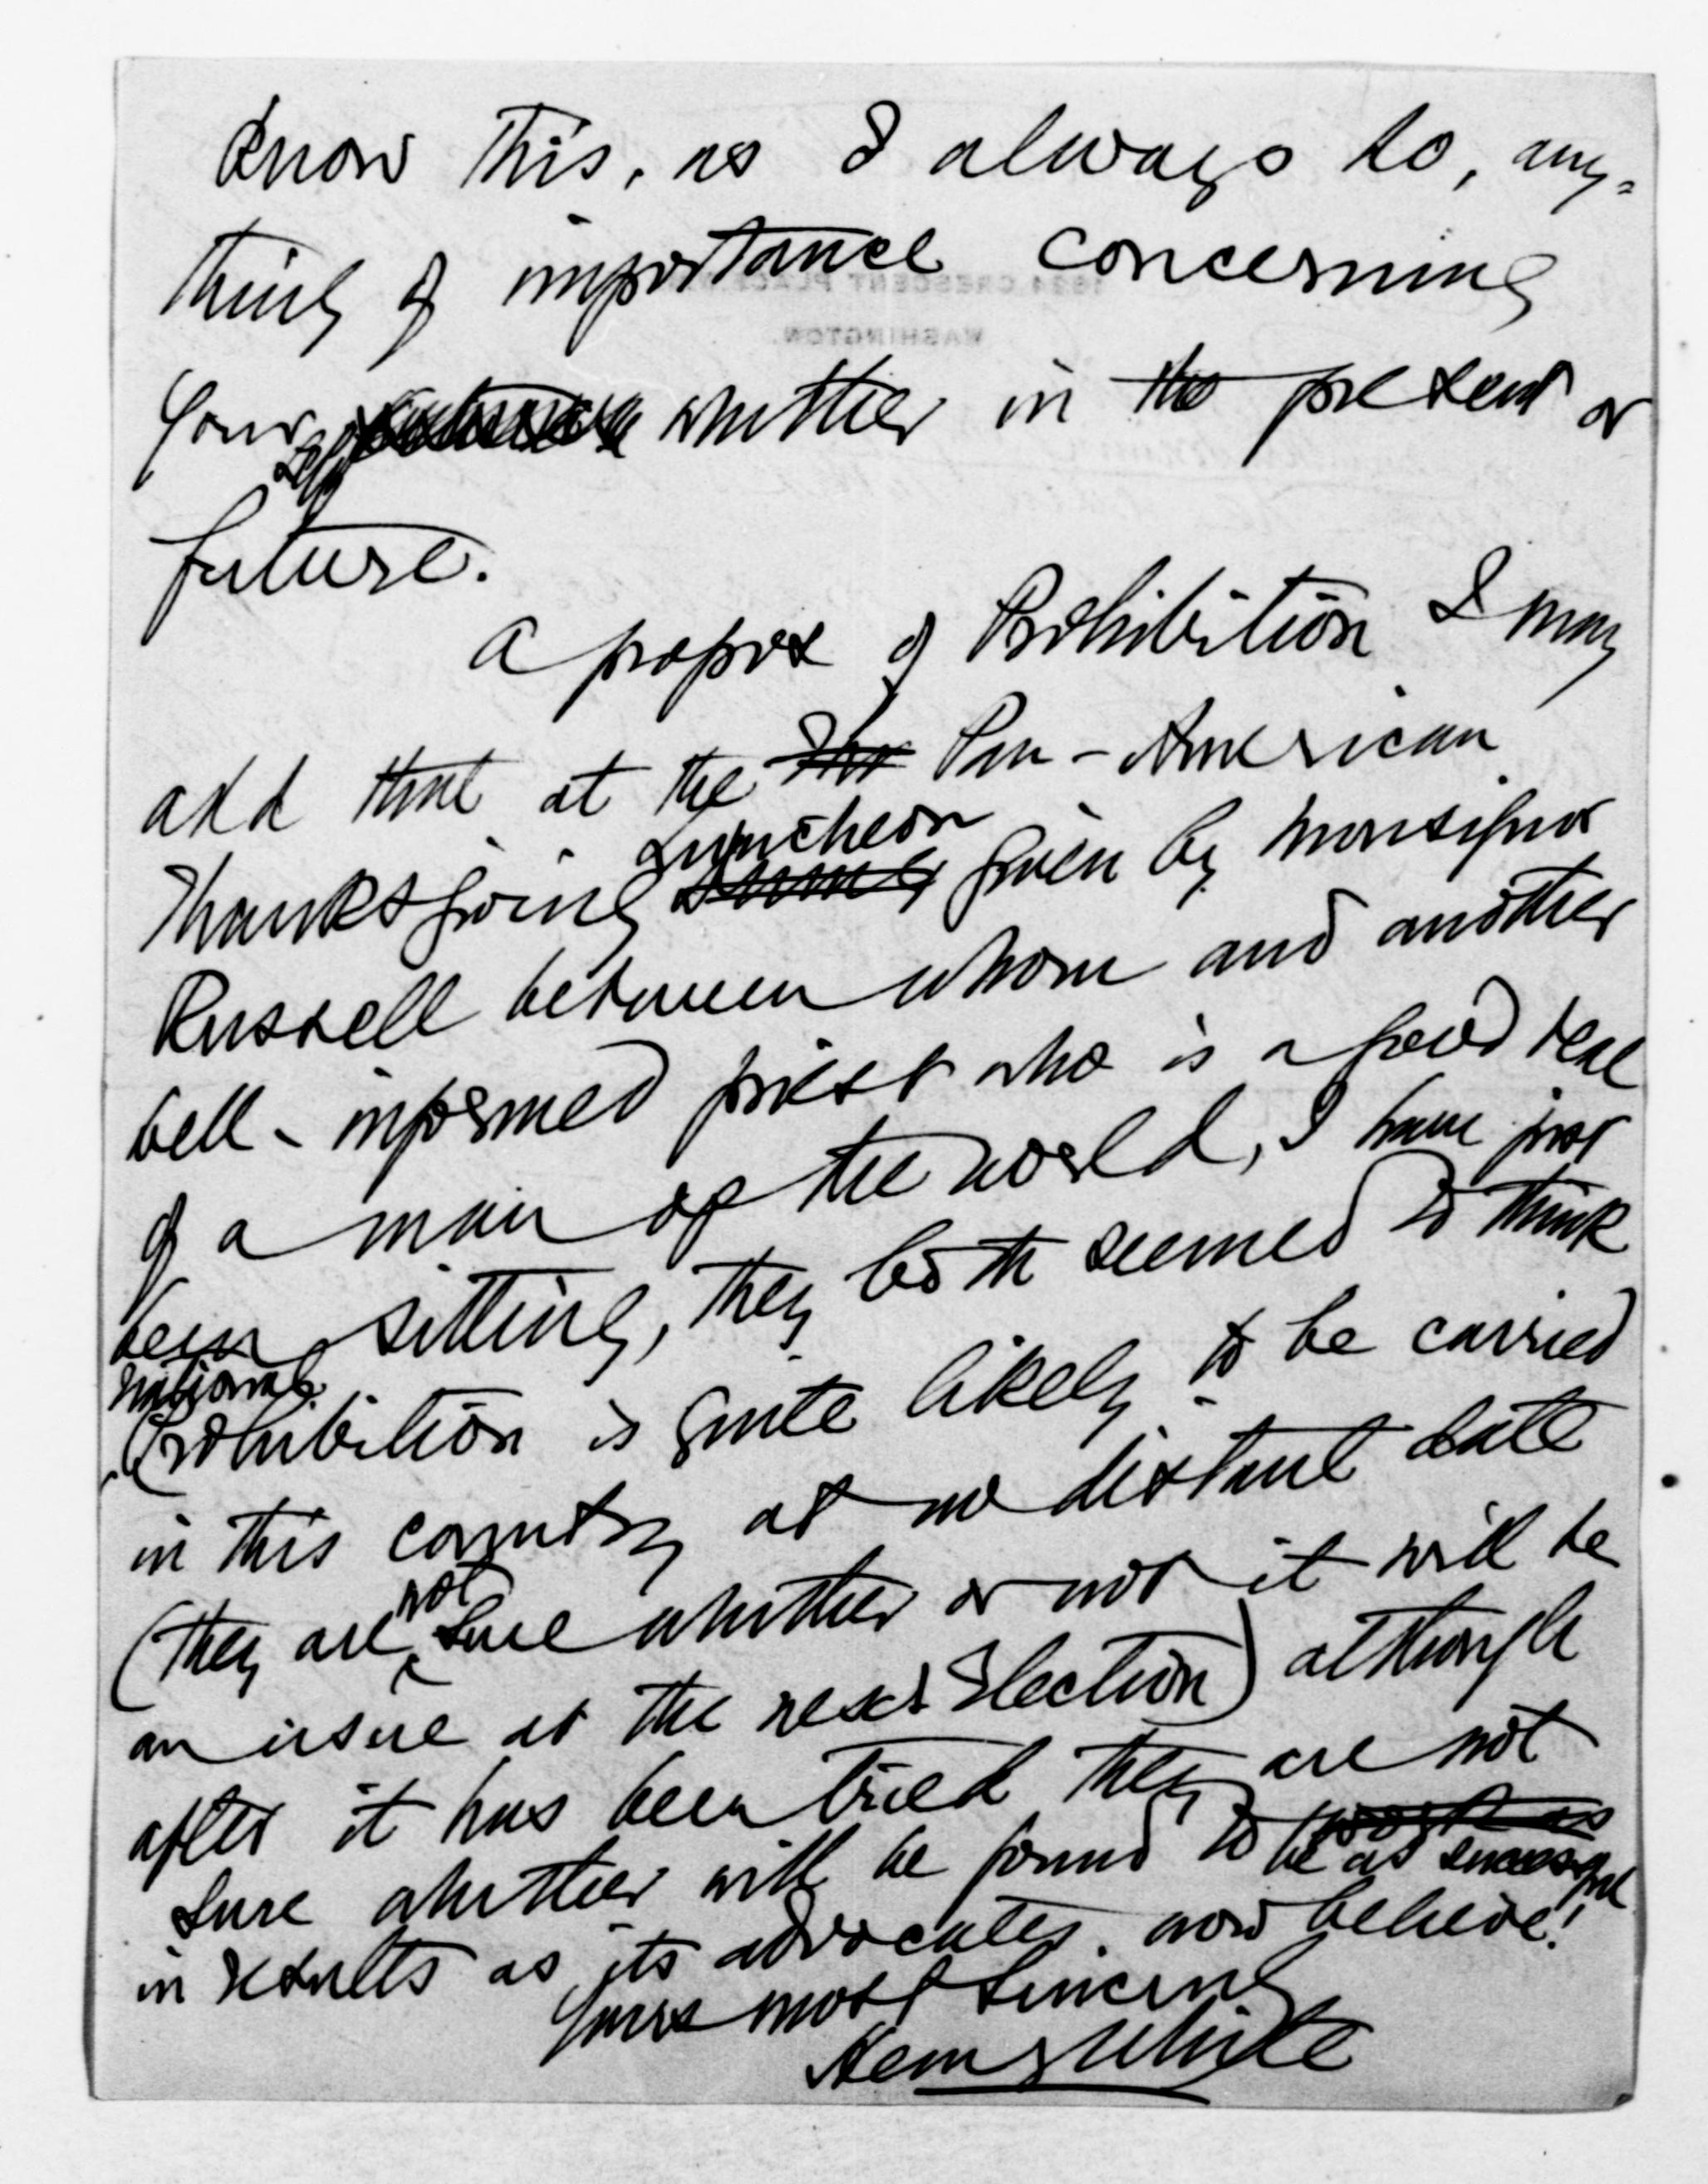 know this, as I always do, any-
thing of importance concerning
your self whether in the present or
future.
A propos of Prohibition I may
add that at the The Pan-American
Thanksgiving Luncheon given by Monsignor
Russell between whom and another
well-informed priest who is a good deal
of a man of the world, I have just
been sitting, they both seemed to think
national Prohibition is quite likely to be carried
in this country at no distant date
(they are not sure whether or not it will be
an issue at the next Election) although
after it has been tried they are not
sure whether will be found to work as be as successful
in results as its advocates now believe!
Yours most sincerely
Henry White
1624 CRESCENT PLACE
WASHINGTON.